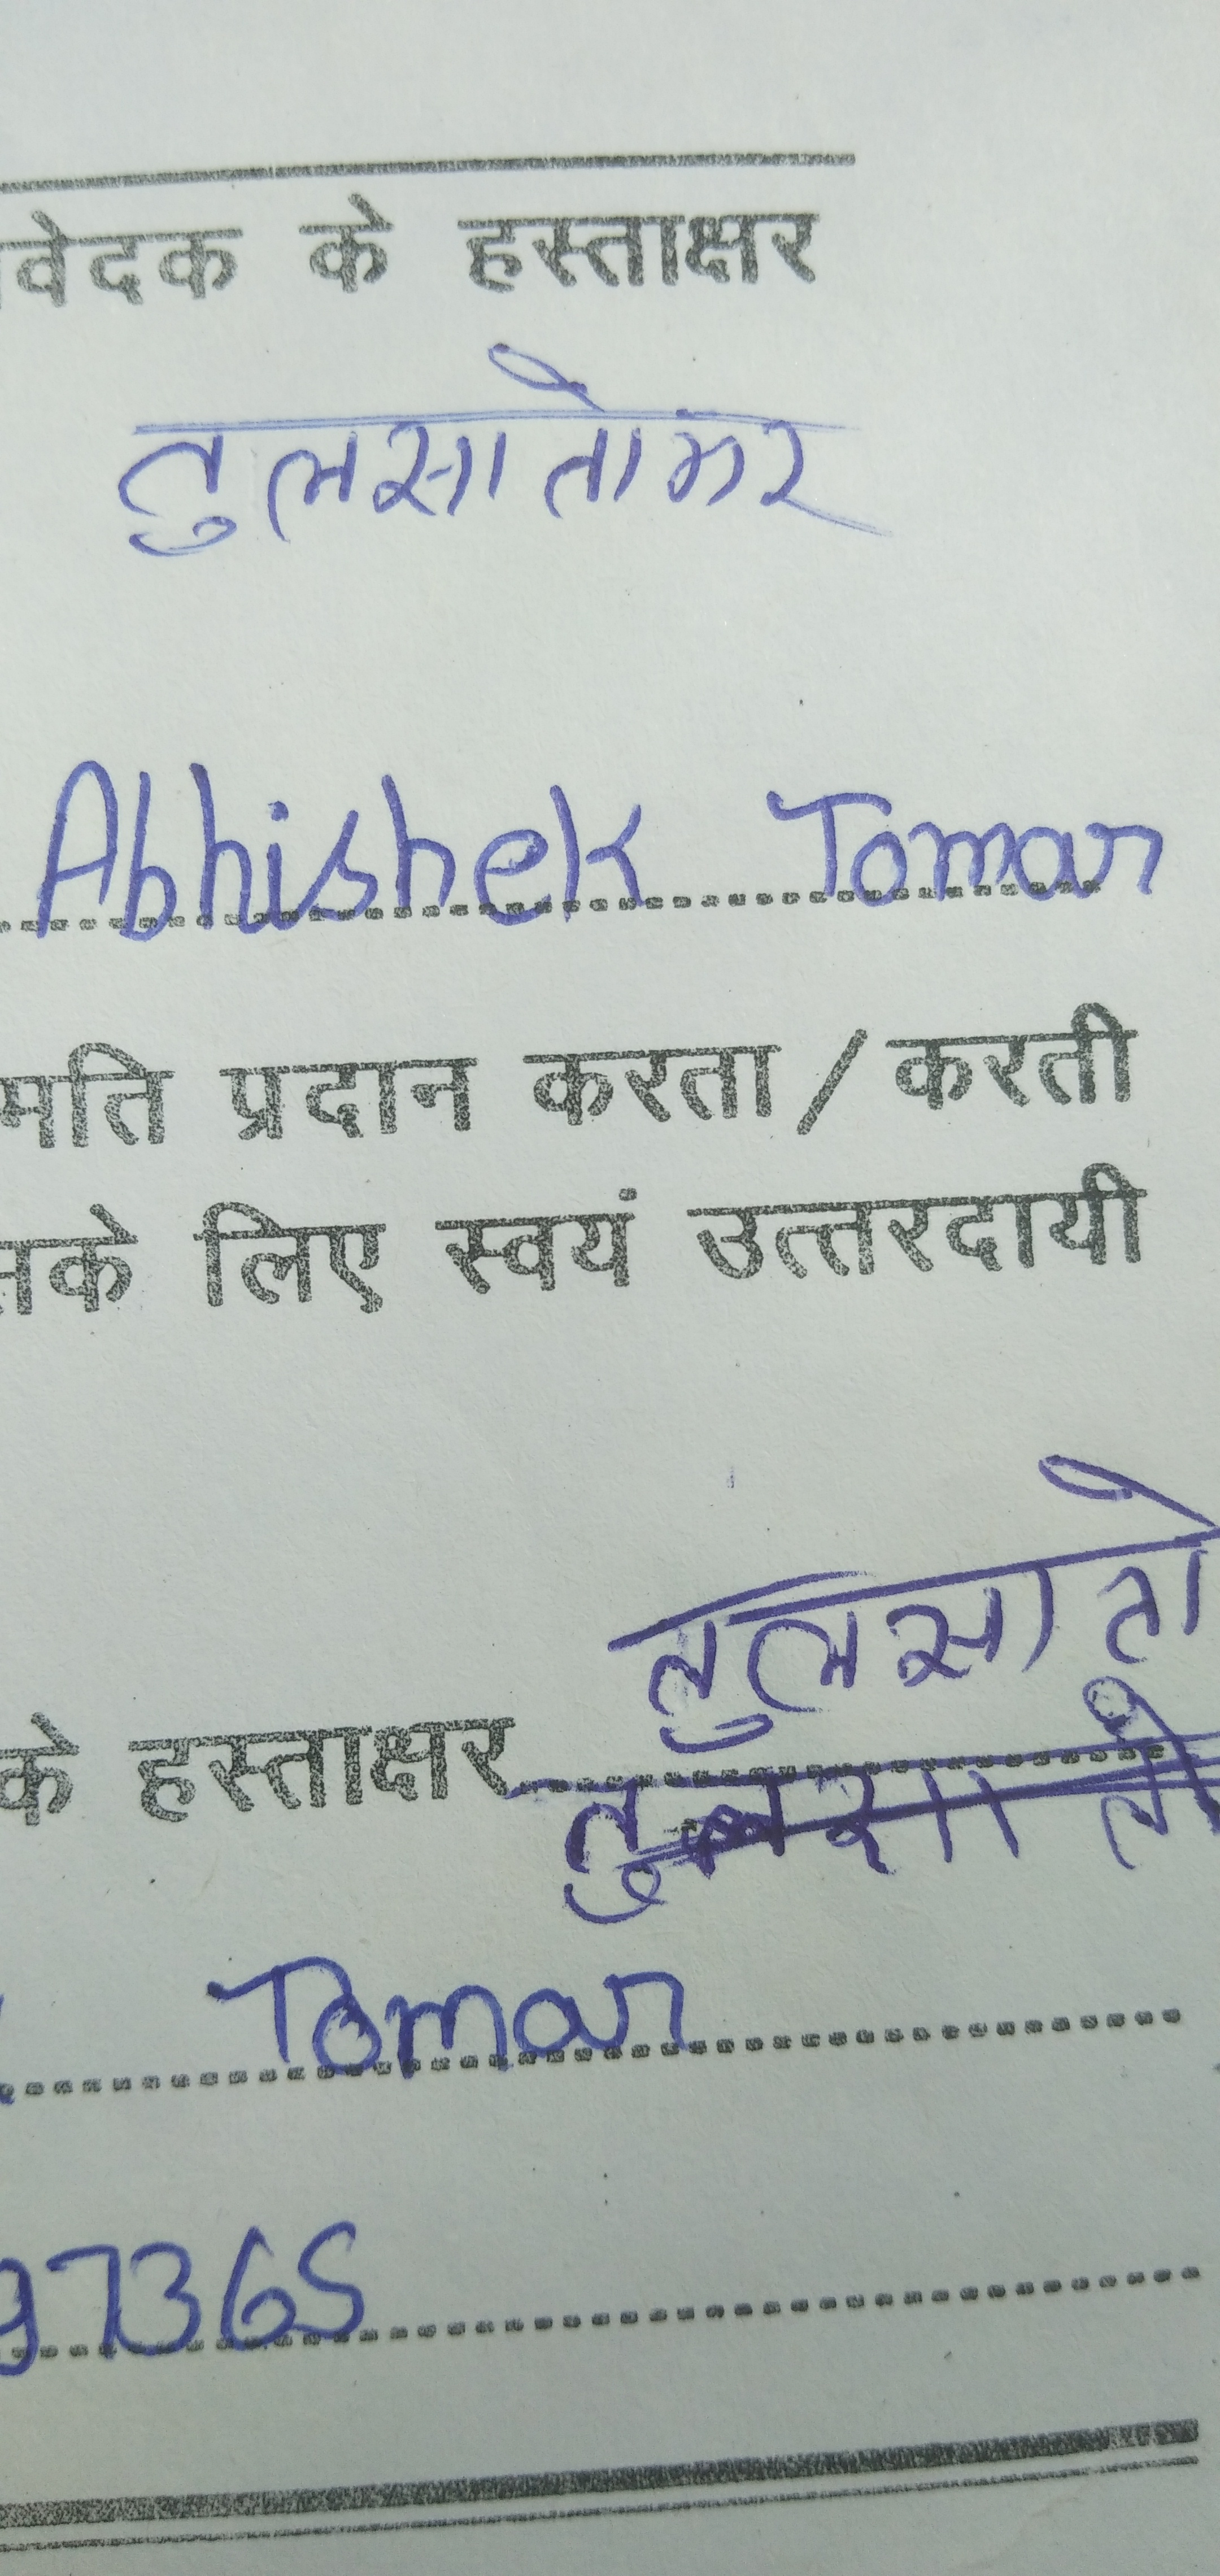 वेदक के हस्ताक्षर
तुलसा तोमर
Abhishek Tomar
मति प्रदान करता / करती
सके लिए स्वयं उत्तरदायी
तुलसा तो
के हस्ताक्षर
तुलसा तो
Tomar
97365